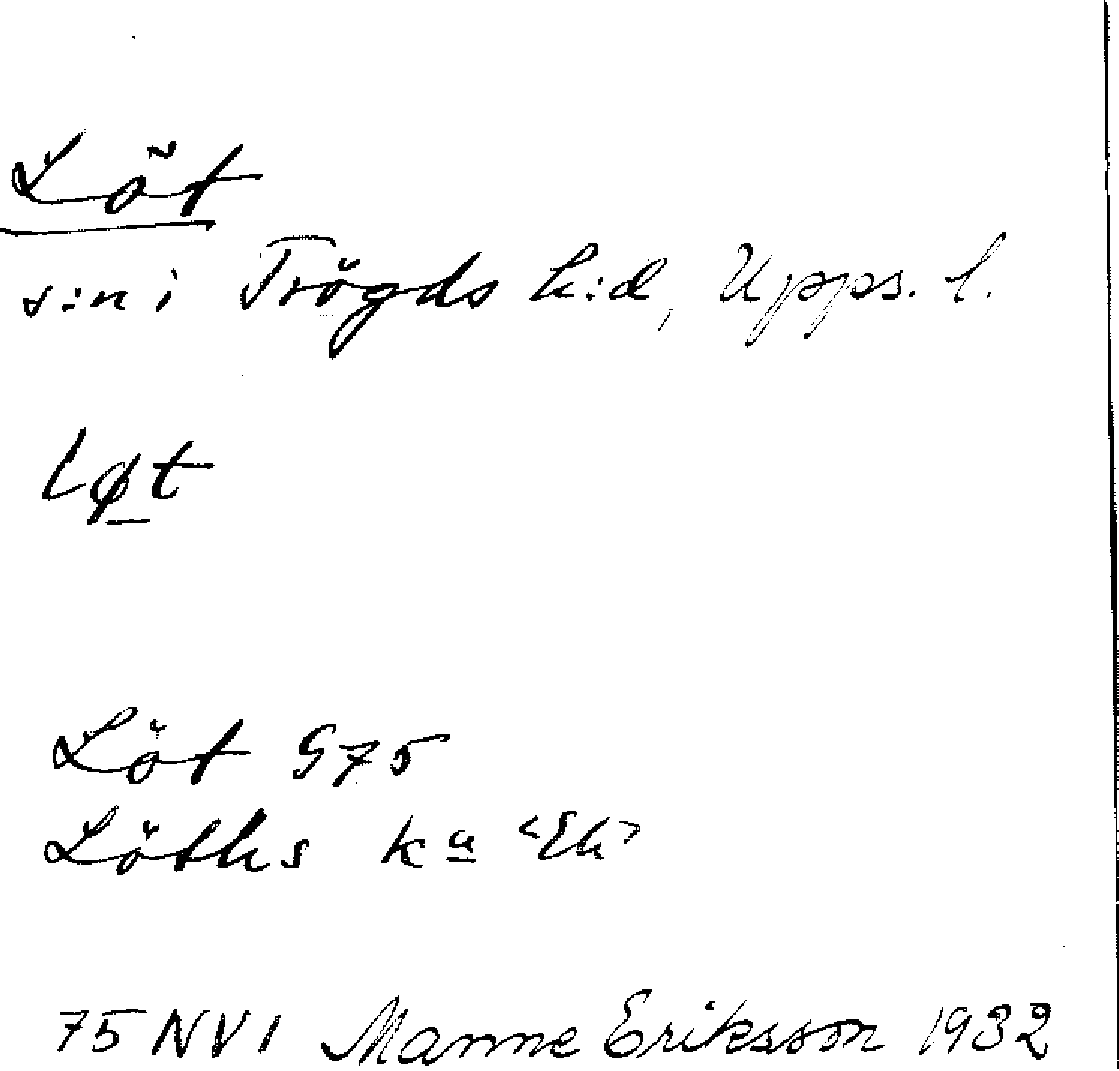 Löt
s:n i Trögds h:d, Upps. l.
lø̲t
Löt G75
Löths ka <Ek>
75 NV 1 Manne Eriksson 1932